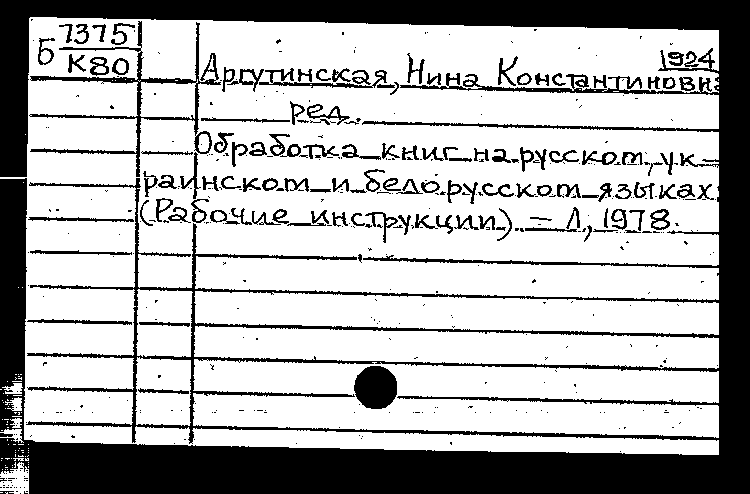 Б 7375
К80
1924
Аргутинская, Нина Константиновна
ред.
Обработка книг на русском, ук-
раинском и белорусском языках:
(Рабочие инструкции). – Л, 1978.